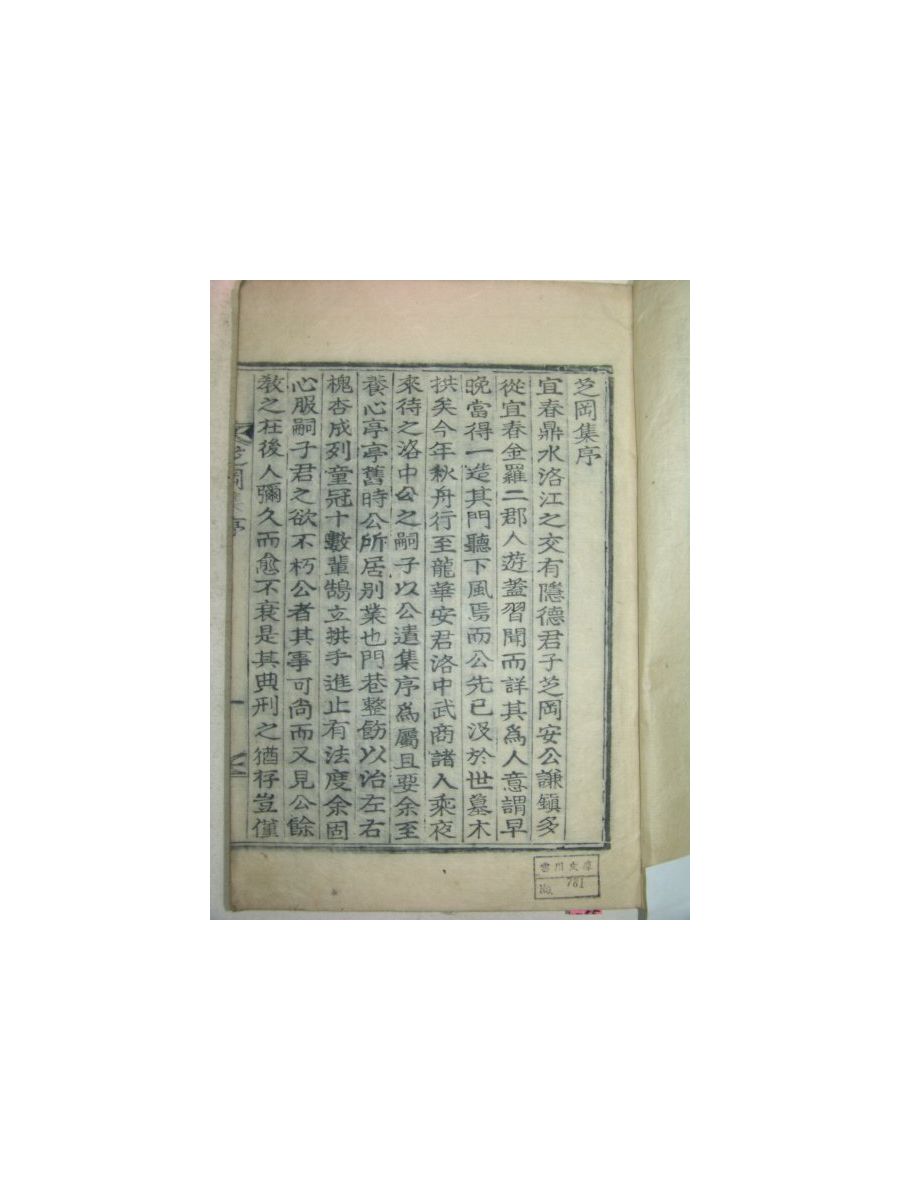 芝岡集序
宜春鼎水洛江之交有隱德君子芝岡安公謙鎭多
從宜春金羅二郡人遊蓋習聞而詳其爲人意謂早
晚當得一造其門聽下風焉而公先已沒於世墓木
拱矣今年秋舟行至龍華安君洛中武商諸人乘夜
來待之洛中公之嗣子以公遺集序爲屬且要余至
養心亭亭舊時公所居別業也門巷整飭以治左右
槐杏成列童冠十數輩鵠立拱手進止有法度余固
心服嗣子君之欲不朽公者其事可尙而又見公餘
敎之在後人彌久而愈不衰是其典刑之猶存豈僅
芝岡集序
一
文庫
No. 781